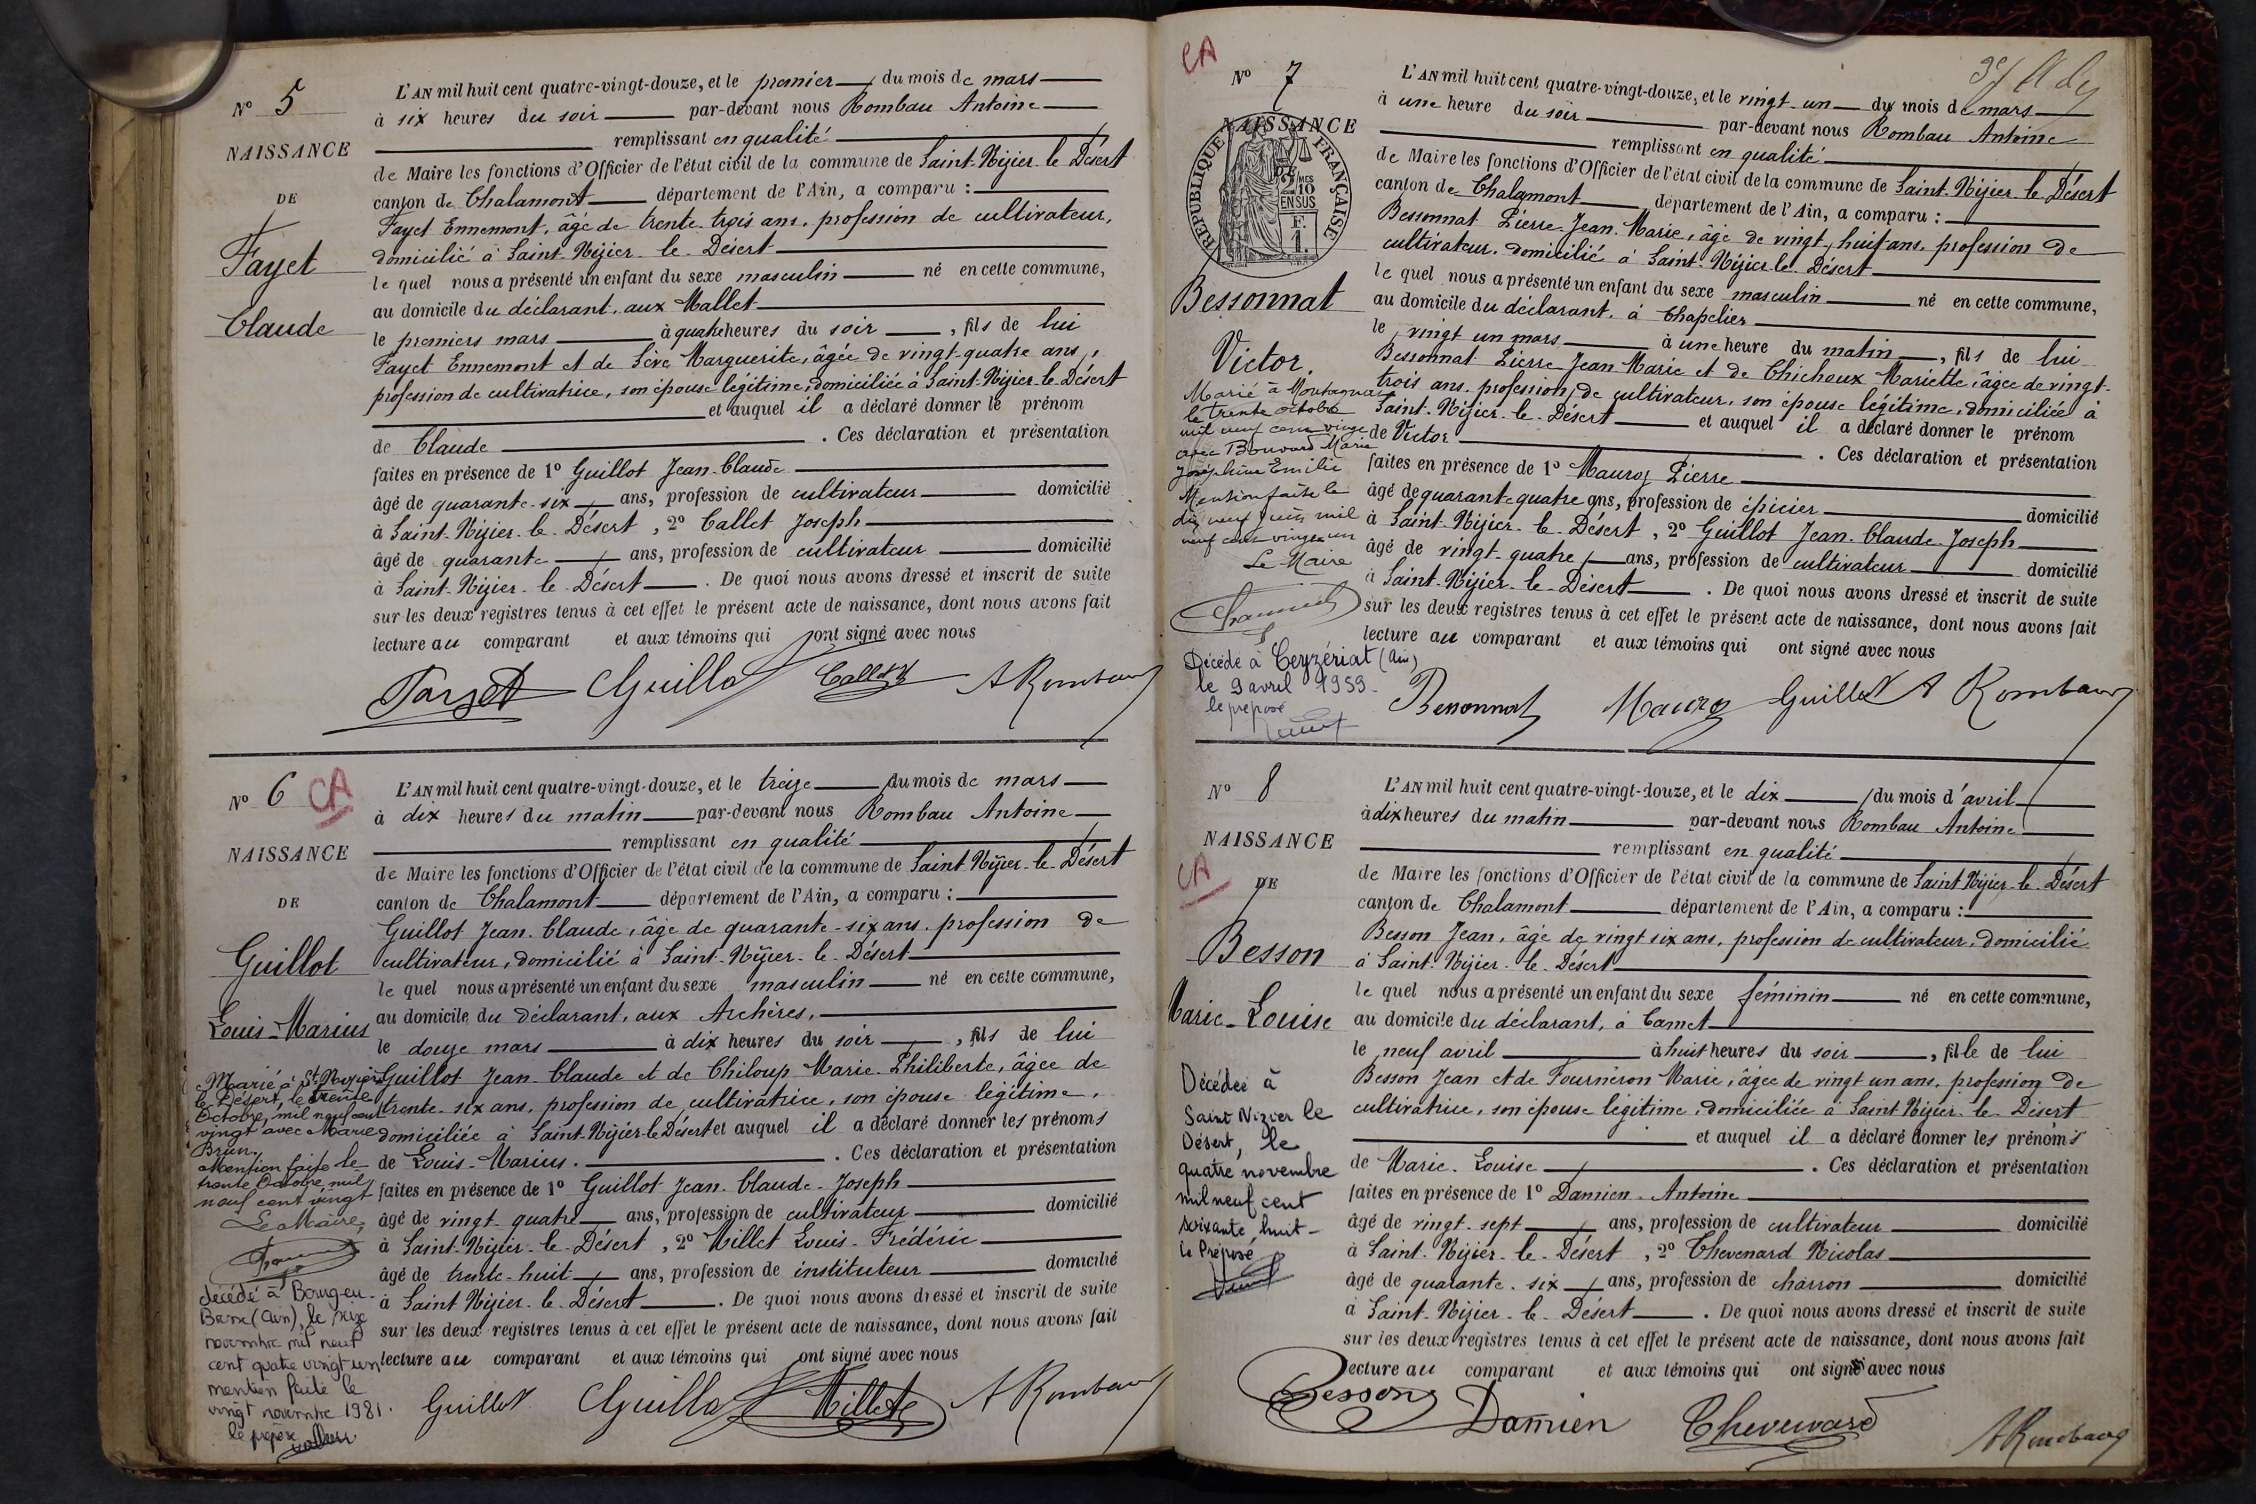 N° 5
NAISSANCE
DE
Fayet
Claude
L'AN mil huit cent quatre-vingt-douze, et le premier du mois de mars
à six heures du soir par-devant nous Rombau Antoine
remplissant en qualité
de Maire les fonctions d'Officier de l'état civil de la commune de Saint-Nizier-le-Désert
canton de Chalamont département de l'Ain, a comparu :
Fayet Ennemont, âgé de trente-trois ans, profession de cultivateur,
domicilié à Saint-Nizier-le-Désert
le quel nous a présenté un enfant du sexe masculin né en cette commune,
au domicile du déclarant, aux Mallet
le premiers mars à quatre heures du soir, fils de lui
Fayet Ennemont et de Sève Marguerite, âgée de vingt-quatre ans,
profession de cultivatrice, son épouse légitime, domiciliée à Saint-Nizier-le-Désert
et auquel il a déclaré donner le prénom
de Claude. Ces déclaration et présentation
faites en présence de 1° Guillot Jean-Claude
âgé de quarante-six ans, profession de cultivateur domicilié
à Saint-Nizier-le-Désert, 2° Callet Joseph
âgé de quarante ans, profession de cultivateur domicilié
à Saint-Nizier-le-Désert. De quoi nous avons dressé et inscrit de suite
sur les deux registres tenus à cet effet le présent acte de naissance, dont nous avons fait
lecture au comparant et aux témoins qui ont signé avec nous
Fayet CGuillot Callet A Rombau
N° 6 CA
NAISSANCE
DE
Guillot
Louis-Marius
Marié à St Nizier
le Désert, le trente
Octobre, mil neuf cent
vingt avec Marie
Brun.
Mention faite le
trente Octobre mil
neuf cent vingt
Le Maire,
décédé à Bourg-en-
Bresse (Ain), le seize
novembre mil neuf
cent quatre vingt un
mention faite le
vingt novembre 1981.
le préposé
L'AN mil huit cent quatre-vingt-douze, et le treize du mois de mars
à dix heures du matin par-devant nous Rombau Antoine
remplissant en qualité
de Maire les fonctions d'Officier de l'état civil de la commune de Saint-Nizier-le-Désert
canton de Chalamont département de l'Ain, a comparu :
Guillot Jean-Claude, âgé de quarante-six ans, profession de
cultivateur, domicilié à Saint-Nizier-le-Désert
le quel nous a présenté un enfant du sexe masculin né en cette commune,
au domicile du déclarant, aux Archères,
le douze mars à dix heures du soir, fils de lui
Guillot Jean-Claude et de Chiloup Marie-Philiberte, âgée de
trente-six ans, profession de cultivatrice, son épouse légitime,
domiciliée à Saint-Nizier-le-Désert et auquel il a déclaré donner les prénoms
de Louis-Marius. Ces déclaration et présentation
faites en présence de 1° Guillot Jean-Claude-Joseph
âgé de vingt-quatre ans, profession de cultivateur domicilié
à Saint-Nizier-le-Désert, 2° Millet Louis-Frédéric
âgé de trente-huit ans, profession de instituteur domicilié
à Saint Nizier-le-Désert. De quoi nous avons dressé et inscrit de suite
sur les deux registres tenus à cet effet le présent acte de naissance, dont nous avons fait
lecture au comparant et aux témoins qui ont signé avec nous
Guillot CGuillot Millet A Rombau
CA
N° 7
NAISSANCE
RÉPUBLIQUE FRANÇAISE
2 MES
10
EN SUS
F.
1.
Bessonnat
Victor.
Marié à Montagnat
le trente octobre
mil neuf cent vingt
avec Bouvard Marie
Joséphine Emilie
Mention faite le
dix neuf juin mil
neuf cent vingt un
Le Maire
Décédé à Ceyzériat (Ain)
le 9 avril 1959
le préposé
L'AN mil huit cent quatre-vingt-douze, et le vingt-un du mois de mars
à une heure du soir par-devant nous Rombau Antoine
remplissant en qualité
de Maire les fonctions d'Officier de l'état civil de la commune de Saint-Nizier-le-Désert
canton de Chalamont département de l'Ain, a comparu :
Bessonnat Pierre-Jean-Marie, âgé de vingt-huit ans, profession de
cultivateur, domicilié à Saint-Nizier-le-Désert
le quel nous a présenté un enfant du sexe masculin né en cette commune,
au domicile du déclarant, à Chapelier
le vingt un mars à une heure du matin, fils de lui
Bessonnat Pierre-Jean-Marie et de Chichoux Mariette, âgée de vingt-
trois ans, profession de cultivateur, son épouse légitime, domiciliée à
Saint-Nizier-le-Désert et auquel il a déclaré donner le prénom
de Victor. Ces déclaration et présentation
faites en présence de 1° Mauroz Pierre
âgé de quarante quatre ans, profession de épicier domicilié
à Saint-Nizier-le-Désert, 2° Guillot Jean-Claude-Joseph
âgé de vingt-quatre ans, profession de cultivateur domicilié
à Saint-Nizier-le-Désert. De quoi nous avons dressé et inscrit de suite
sur les deux registres tenus à cet effet le présent acte de naissance, dont nous avons fait
lecture au comparant et aux témoins qui ont signé avec nous
Bessonnat Mauroz Guillot A Rombau
N° 8
NAISSANCE
CA
DE
Besson
Marie-Louise
Décédée à
Saint Nizier le
Désert, le
quatre novembre
mil neuf cent
soixante huit -
Le Préposé
L'AN mil huit cent quatre-vingt-douze, et le dix du mois d'avril
à dix heures du matin par-devant nous Rombau Antoine
remplissant en qualité
de Maire les fonctions d'Officier de l'état civil de la commune de Saint Nizier-le-Désert
canton de Chalamont département de l'Ain, a comparu :
Besson Jean, âgé de vingt six ans, profession de cultivateur, domicilié
à Saint-Nizier-le-Désert
le quel nous a présenté un enfant du sexe féminin né en cette commune,
au domicile du déclarant, à Camet
le neuf avril à huit heures du soir, fille de lui
Besson Jean et de Fournéron Marie, âgée de vingt un ans, profession de
cultivatrice, son épouse légitime, domiciliée à Saint Nizier-le-Désert
et auquel il a déclaré donner les prénoms
de Marie-Louise. Ces déclaration et présentation
faites en présence de 1° Damien Antoine
âgé de vingt-sept ans, profession de cultivateur domicilié
à Saint-Nizier-le-Désert, 2° Chevenard Nicolas
âgé de quarante-six ans, profession de charron domicilié
à Saint-Nizier-le-Désert. De quoi nous avons dressé et inscrit de suite
sur les deux registres tenus à cet effet le présent acte de naissance, dont nous avons fait
lecture au comparant et aux témoins qui ont signé avec nous
Besson Damien Chevenard A Rombau